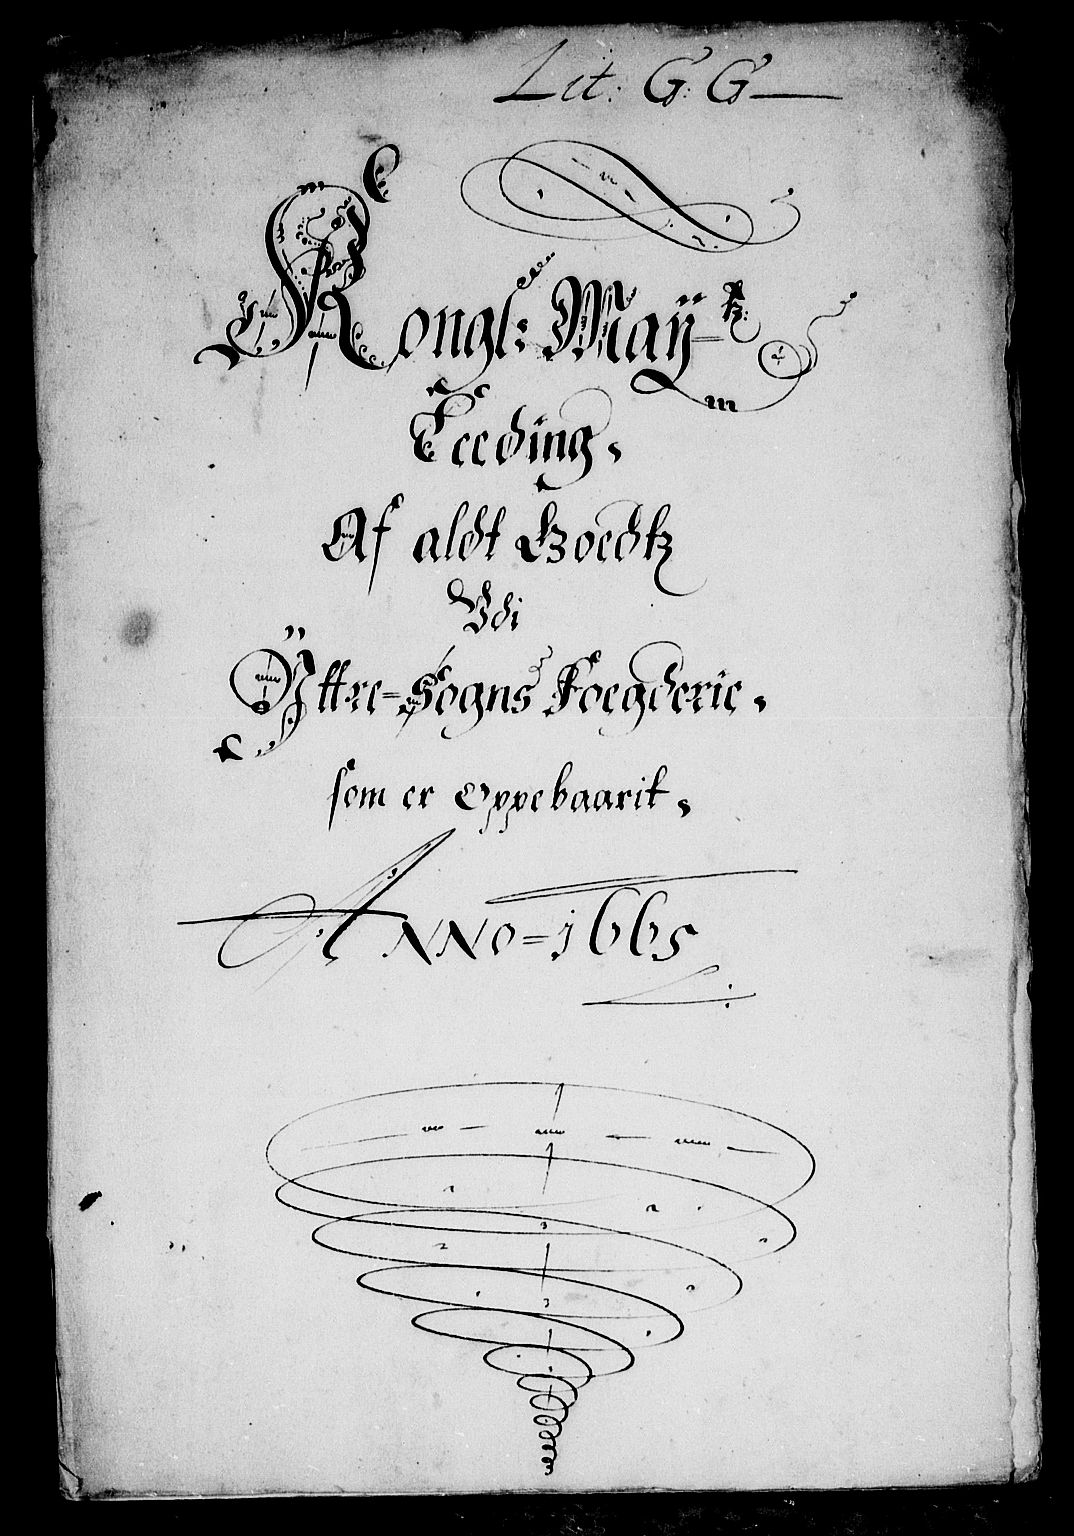 Lit: G: G
Kongl: Maÿ-tz:
Teeding.
Af aldt Goedtz
Vdi
Ÿttre=Sogns Foegderie.
som er Oppebaarit.
ANNO=1665